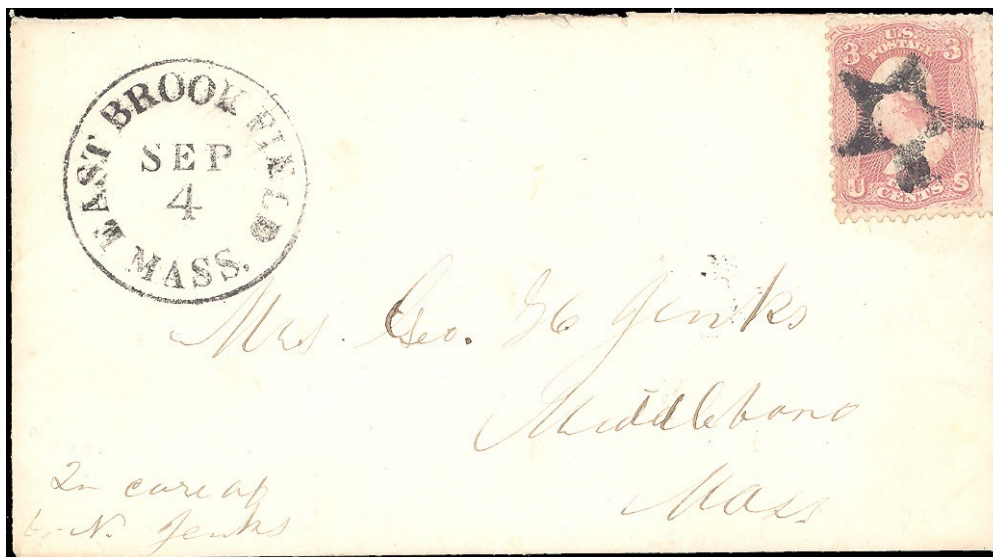 EAST BROOKFIELD
SEP
4
MASS.
3 U.S. 3
POSTAGE
U CENTS S
Mrs. Geo. H Jenks
Middleboro
Mass
In care of
N. Jenks